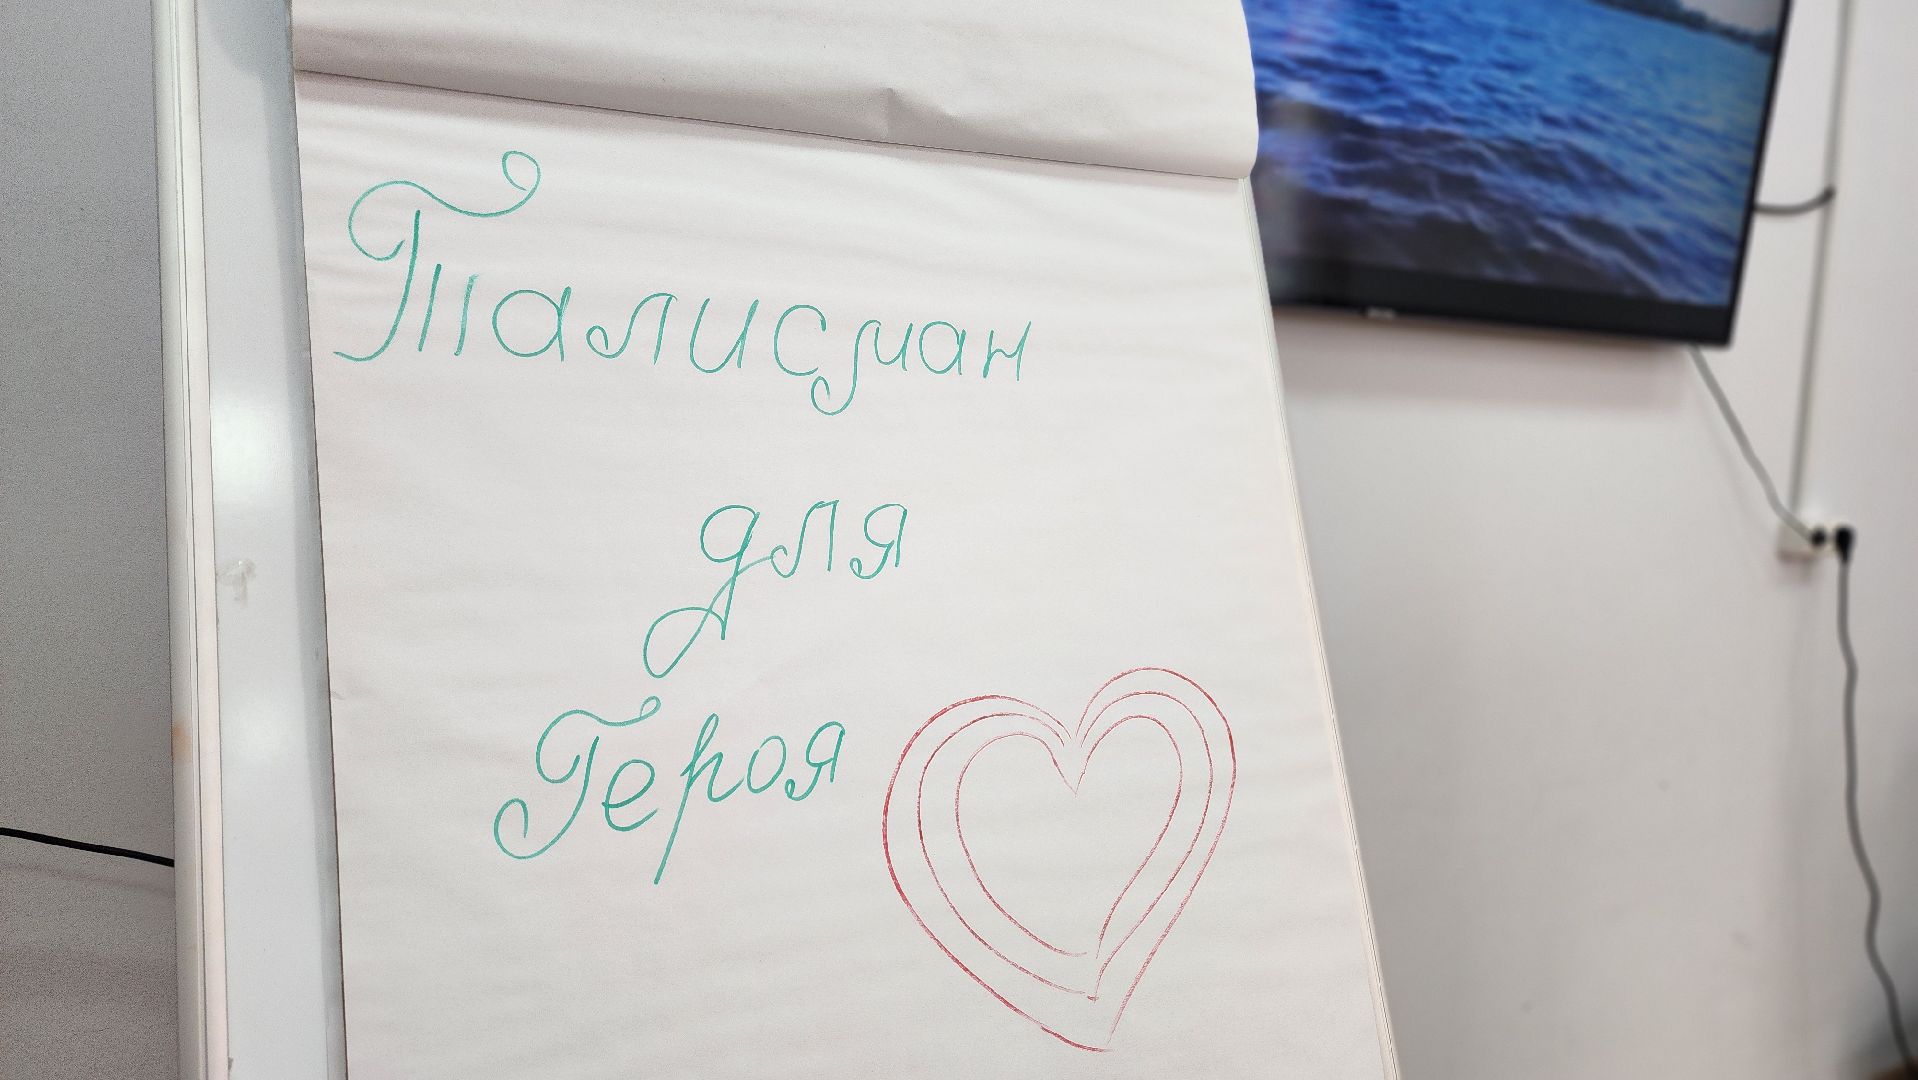 Талисман
для
Героя